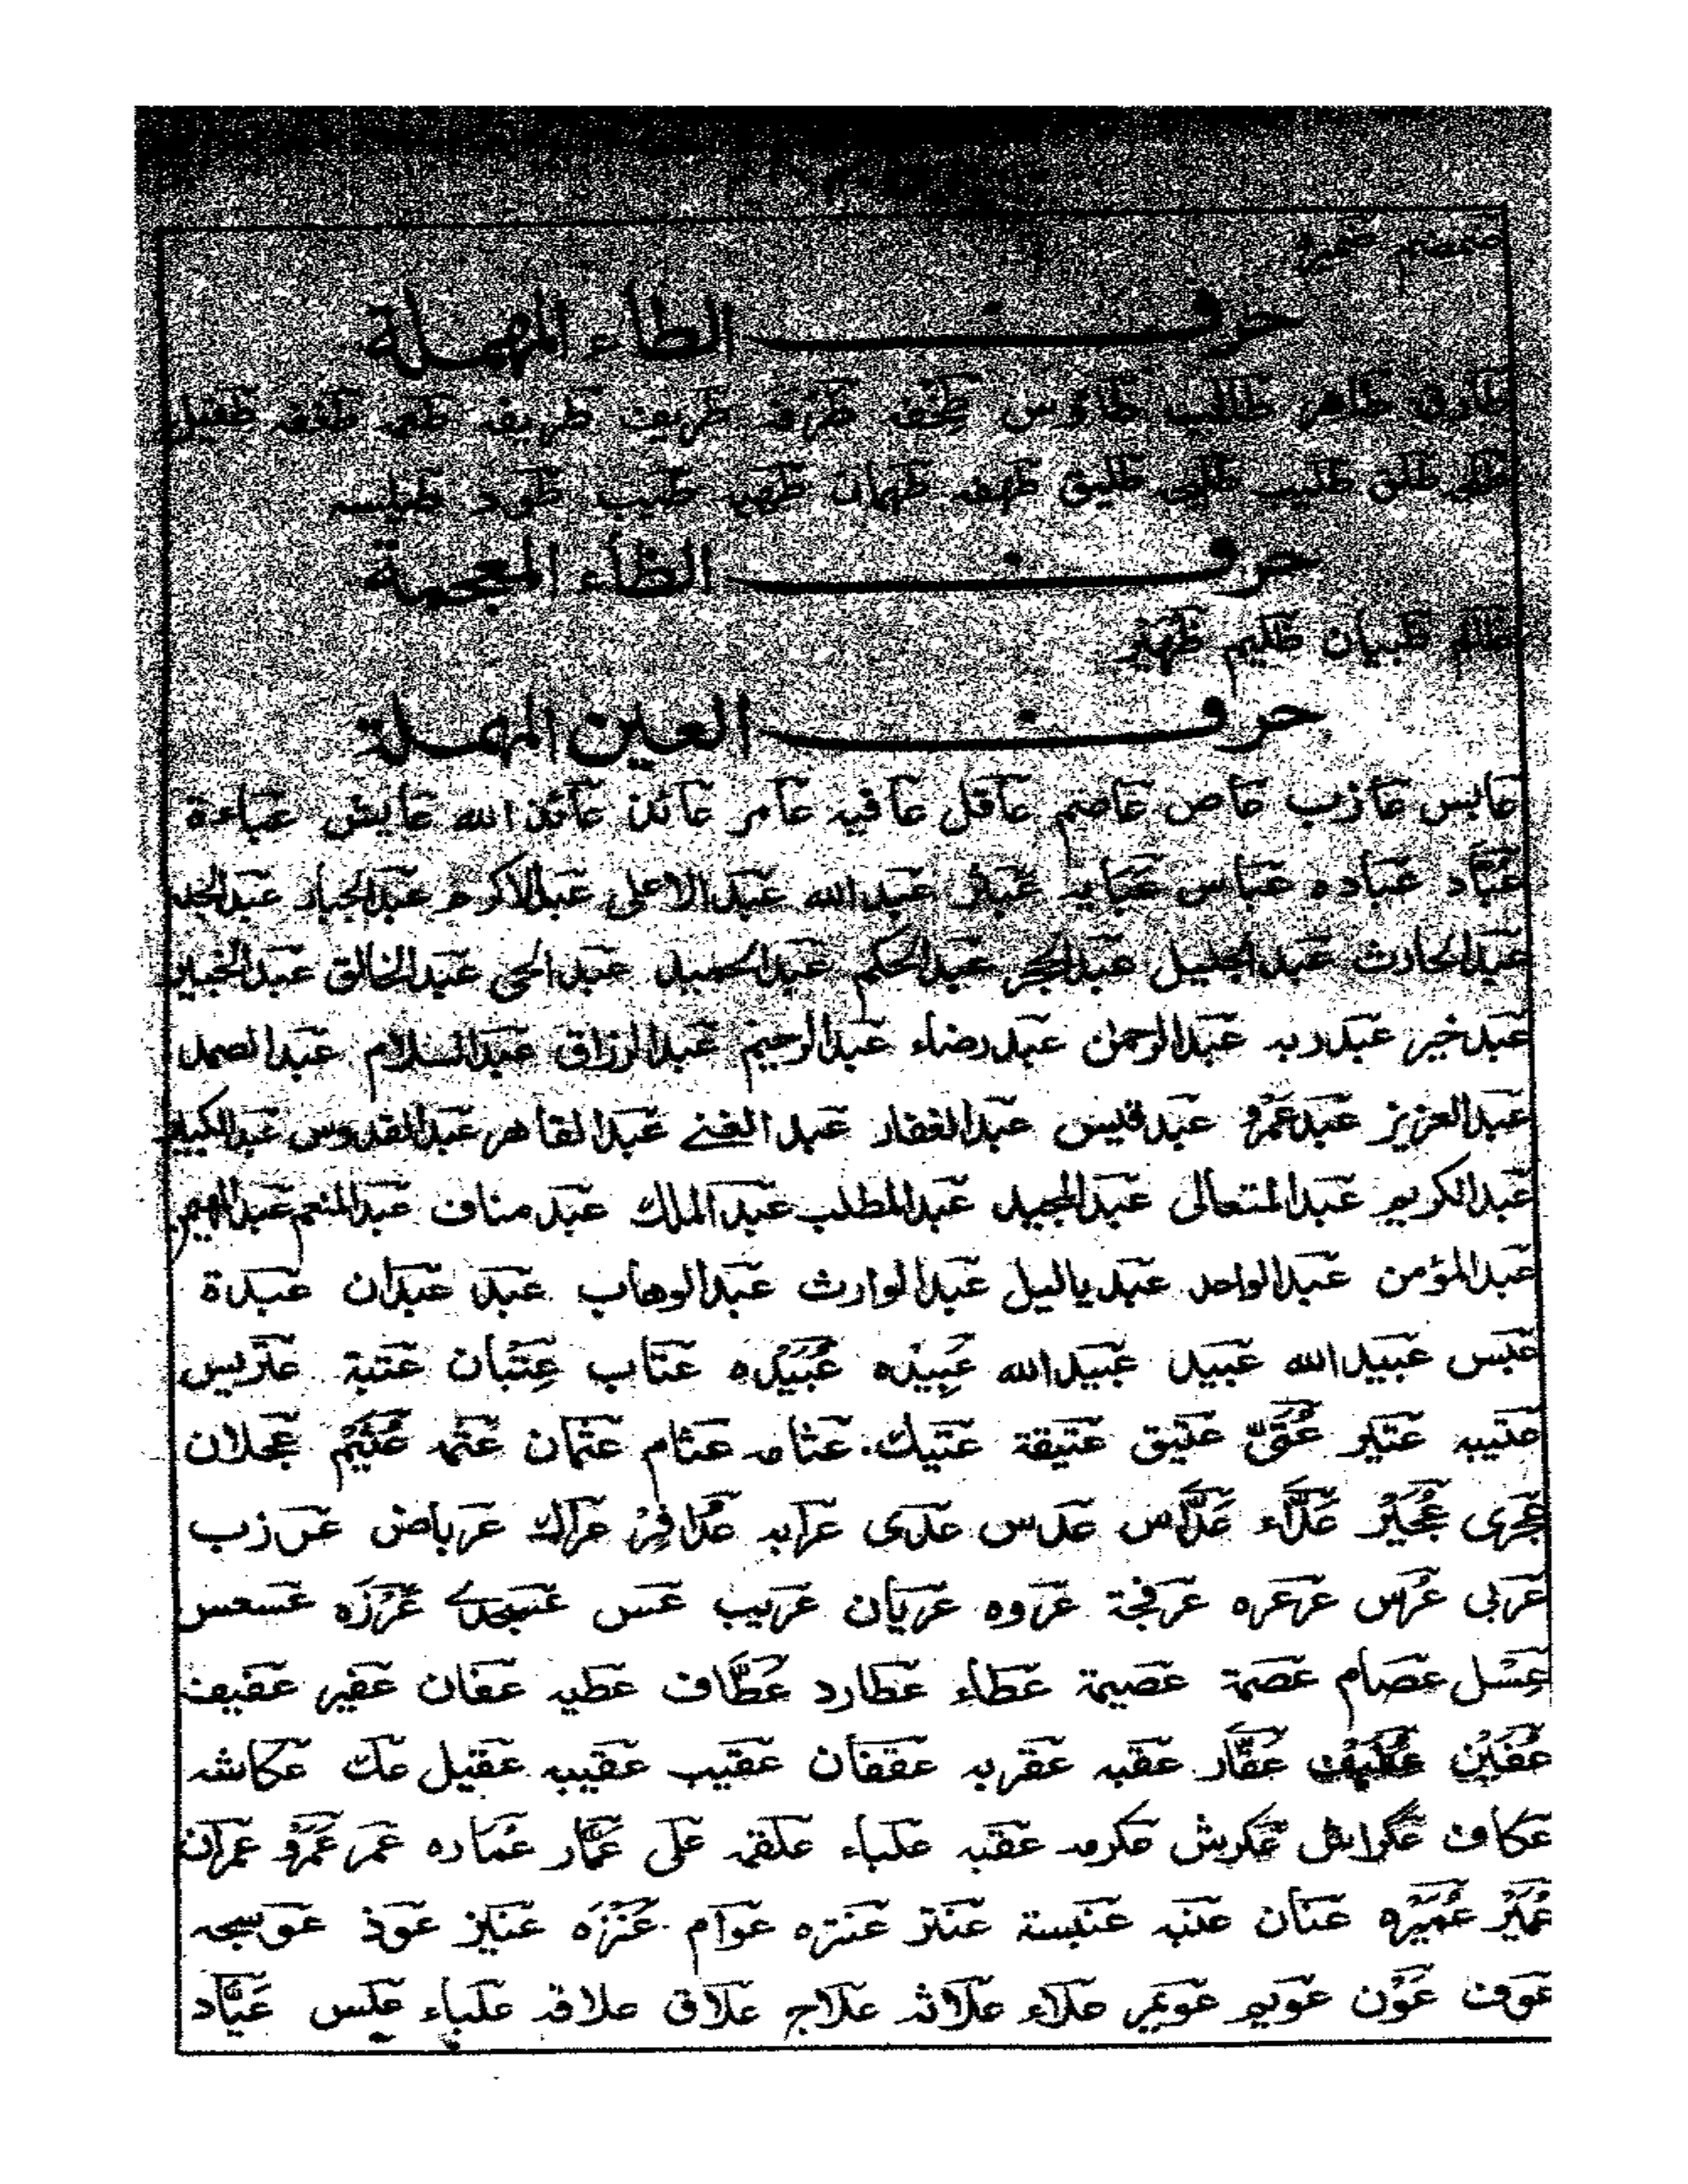 ضمضم ضميره
حرف الطاء المهملة
طارق طاهر طالب طاؤس طخفه طرفة طريف طريفه طعمه طغفه طفيل
طلق طليب طليق طهفه طهمان طبيب طود
حرف الظاء المعجمة
ظالم ظبيان ظليم ظهير
حرف العين المهملة
عابس عازب عاص عاصم عاقل عافيه عامر عائذ عائذ الله عايش عباءة
عبّاد عباده عباس عبايه عبد الله عبد الاعلى عبد الاكرم عبد الجبار
عبد الحارث عبد الجليل عبد الحجر عبد الحكم عبد الحميد عبد الحى عبد الخالق عبد الخبير
عبد خير عبد ربه عبد الرحمن عبد رضاء عبد الرحيم عبد الرزاق عبد السلام عبد الصمد
عبد العزيز عبد عمرو عبد قيس عبد الغفار عبد الغنے عبد القاهر عبد القدوس عبد الكبير
عبد الكريم عبد المتعالى عبد المجيد عبد المطلب عبد الملك عبد مناف عبد المنعم عبد المهيمن
عبد المؤمن عبد الواحد عبد ياليل عبد الوارث عبد الوهاب عبد عبدان عبدة
عبس عبيد الله عبيد عبيد الله عَبِيدَه عُبَيْدَه عتاب عِتْبان عتبة عتريس
عتيبه عتير عُتَىّ عتيق عتيقة عتيك عثامه عثام عثمان عثمه عُثَيْم عجلان
عجرى عُجَيْر عَدَّاء عَدَّاس عدس عدى عرابه عُذَافِرْ عراك عرباض عرزب
عربى عُرس عرعره عرفجة عروه عريان عريب عس عسجدے عَزْرَه عسعس
عِسْل عصام عصمة عصيمة عطاء عطارد عَطَّاف عطيه عفان عفير عفيف
عُفَيْن عُفَّار عقبه عقربه عقفان عقيب عقيبه عقيل عك عكاشه
عكاف عكراش عكرش عكرمه عقبه علباء علقمه على عَمَّار عُمَاره عمر عَمْرو عمران
عُمَيْر عُمَيْرَه عنان عنبه عنبسة عنتر عنتره عوام عَنَزَه عنيز عوذ عوسجه
عوف عَوْن عويم عويمر علاء علاثه علاج علاق علاقه علباء علس عَيَّاد